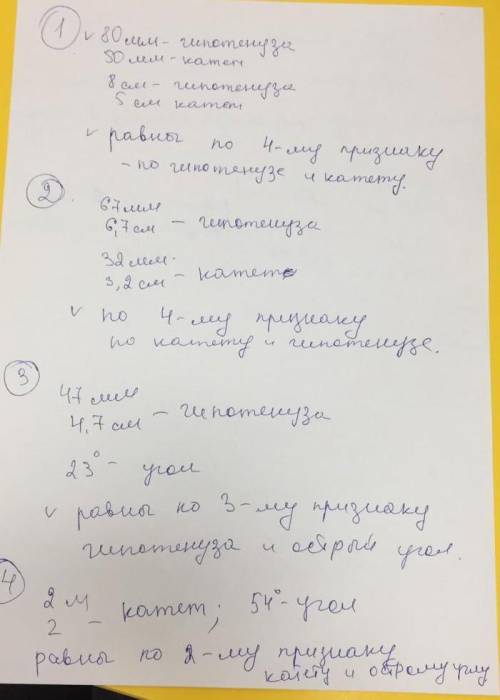 1 v 80 мм - гипотенуза
50 мм - катет
8 см - гипотенуза
5 см катет
v равны по 4-му признаку
- по гипотенузе и катету.
2
67 мм
6,7 см - гипотенуза
32 мм.
3,2 см - катет
v по 4-му признаку
по катету и гипотенузе.
3
47 мм
4,7 см - гипотенуза
23° - угол
v равны по 3-му признаку
гипотенуза и острый угол.
4
2 м
2 - катет; 54° - угол
равны по 2-му признаку
катету и острому углу